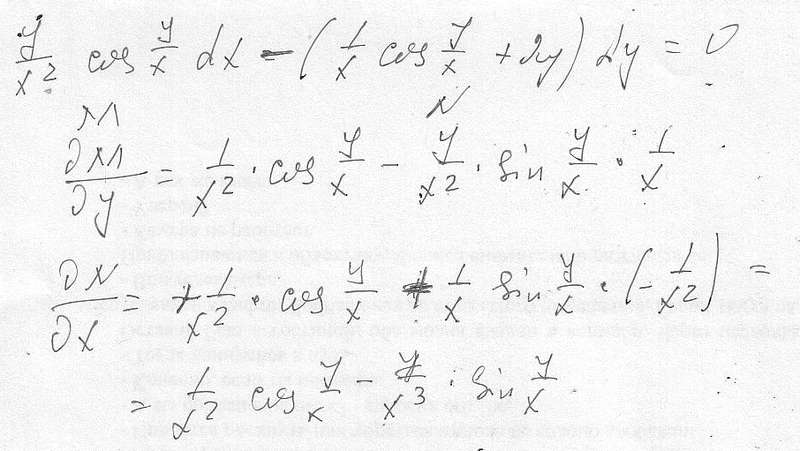 y/x² cos y/x dx - (1/x cos y/x + 2y) dy = 0
M N
∂M/∂y = 1/x² · cos y/x - y/x² · sin y/x · 1/x
∂N/∂x = + 1/x² · cos y/x + 1/x sin y/x · (- 1/x²) =
= 1/x² cos y/x y/x³ · sin y/x